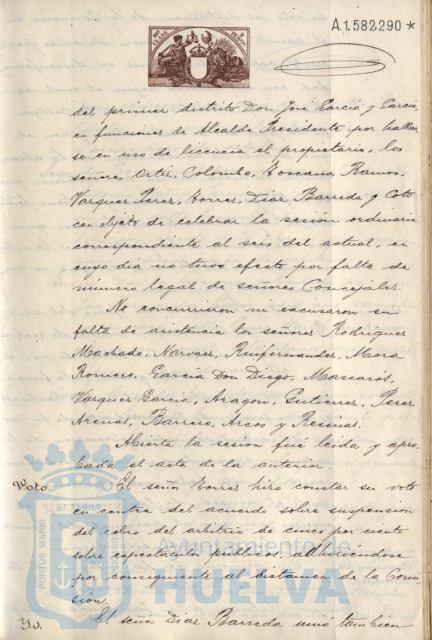 A.1.582.290 *
del primer distrito Don José García y García,
en funciones de Alcalde Presidente por hallar-
se en uso de licencia el propietario, los
señores Ortiz, Colombo, Toscano, Ramos,
Vazquez Perez, Torres, Diaz Barreda y Coto
con objeto de celebrar la sesión ordinaria
correspondiente al seis del actual, en
cuyo día no tuvo efecto por falta de
número legal de señores Concejales.
No concurrieron ni excusaron su
falta de asistencia los señores Rodriguez
Machado, Narvaez, Ruifernandez, Mora
Romero, García Don Diego, Mascarós,
Vazquez García, Aragon, Gutierrez, Perez
Arenas, Barrero, Arcos y
Abierta la sesión fué leida y apro-
bada el acta de la anterior.
Voto El señor Torres hizo constar su voto
en contra del acuerdo sobre suspensión
del cobro del arbitrio de cinco por ciento
sobre espectáculos públicos, adhiriéndose
por consiguiente al dictamen de la Comi-
sión.
Yd. El señor Diaz Barreda unió tambien
PORTUS MARIS ET TERRÆ
Ayuntamiento de
HUELVA